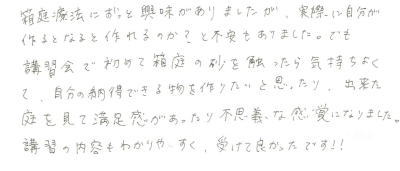 箱庭療法にずっと興味がありましたが、実際に自分が
作るとなると作れるのか?と不安もありました。でも
講習会で初めて箱庭の砂を触ったら気持ちよく
て、自分の納得できる物を作りたいと思ったり、出来た
庭を見て満足感があったり不思議な感覚になりました。
講習の内容もわかりやすく、受けて良かったです!!